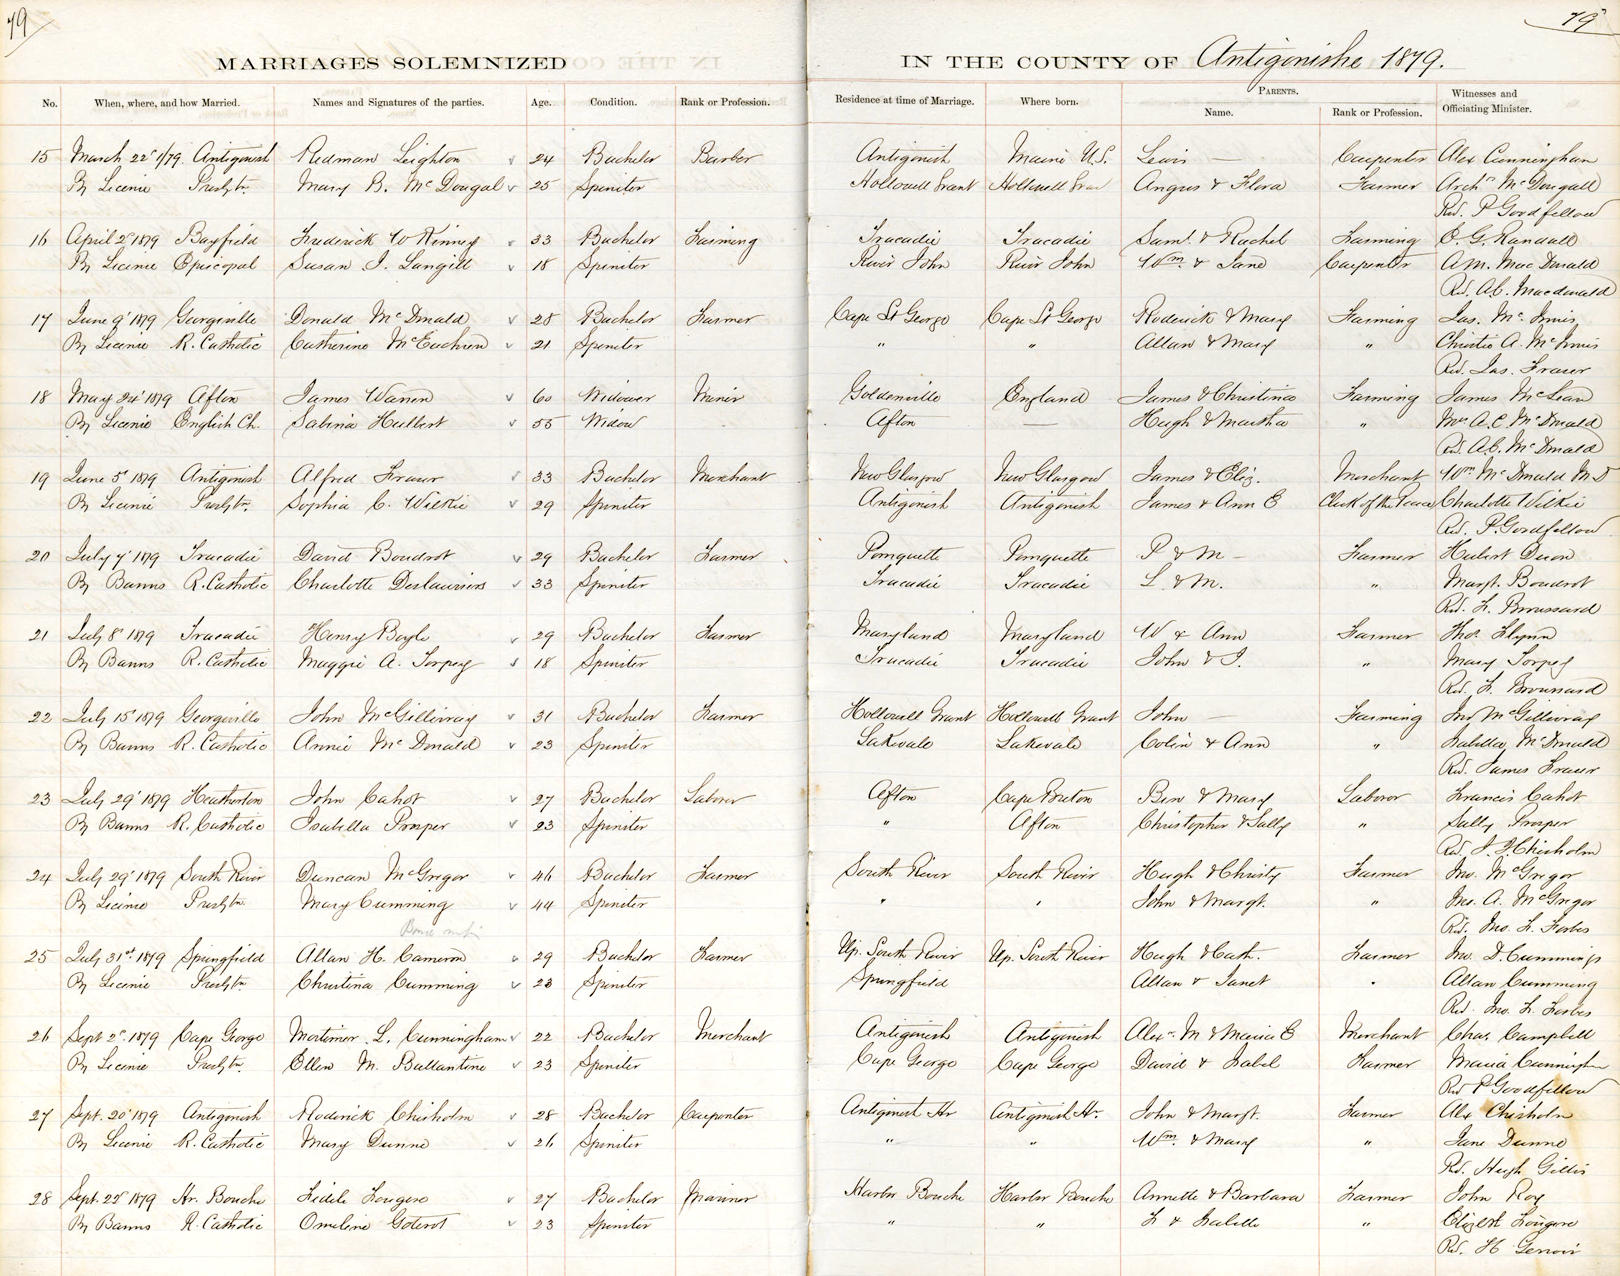 79
79
MARRIAGES SOLEMNIZED IN THE COUNTY OF Antigonishe 1879.
No. When, where, and how Married. Names and Signatures of the parties. Age. Condition. Rank or Profession. Residence at time of Marriage. Where born. PARENTS. Name. Rank or Profession. Witnesses and Officiating Minister.
15 March 22d 1/79 Antigonish Redman Leighton 24 Bachelor Barber Antigonish Maine U.S. Lewis — Carpenter Alex Cunningham
By License Presbytn. Mary B. McDougal 25 Spinster Hollowell Grant Hollowell Farmer Angus & Flora Archd McDougall
Rev. P Goodfellow
16 April 2d 1879 Bayfield Frederick W Kinney 33 Bachelor Farming Tracadie Tracadie Saml. & Rachel Farming E. G. Randall
By License Episcopal Susan J. Langill 18 Spinster River John River John Wm. & Jane Carpenter A M. Mac Donald
Rev. A.C. Macdonald
17 June 9' 1879 Georgeville Donald McDonald 28 Bachelor Farmer Cape St George Cape St George Roderick & Mary Farming Jas. McInnis
By License R. Catholic Catherine McEachren 21 Spinster " " Allan & Mary " Christie A. McInnis
Rev. Jas. Fraser
18 May 24' 1879 Afton James Warren 60 Widower Miner Goldenville England James & Christina Farming James McLean
By License English Ch. Sabina Hulbert 55 Widow Afton — Hugh & Martha " Mrs A. C. McDonald
Rev. A.C. McDonald
19 June 5' 1879 Antigonish Alfred Fraser 33 Bachelor Merchant New Glasgow New Glasgow James & Eliz. Merchant Wm McDonald M.D
By License Presbytn. Sophia C. Wilkie 29 Spinster Antigonish Antigonish James & Ann E Clerk of the Peace Charlotte Wilkie
Rev. P. Goodfellow
20 July 7' 1879 Tracadie David Boudrot 29 Bachelor Farmer Pomquette Pomquette P & M — Farmer Hubert
By Banns R. Catholic Charlotte Deslauriers 33 Spinster Tracadie Tracadie L & M. " Margt. Boudrot
Rev. F. Broussard
21 July 8' 1879 Tracadie Henry Boyle 29 Bachelor Farmer Maryland Maryland W & Ann Farmer Thos. Flynn
By Banns R. Catholic Maggie A. Torpey 18 Spinster Tracadie Tracadie John & J. " Mary Torpey
Rev. F. Broussard
22 July 15' 1879 Georgeville John McGillivray 31 Bachelor Farmer Hollowell Grant Hollowell Grant John — Farming Jno McGillivray
By Banns R. Catholic Annie McDonald 23 Spinster Lakevale Lakevale Colin & Ann " Isabella McDonald
Rev. James Fraser
23 July 29' 1879 Heatherton John Cahot 27 Bachelor Laborer Afton Cape Breton Ben & Mary Laborer Francis Cahot
By Banns R. Catholic Isabella Prosper 23 Spinster " Afton Christopher & Sally " Sally Prosper
Rev. J. J Chisholm
24 July 29' 1879 South River Duncan McGregor 46 Bachelor Farmer South River South River Hugh & Christy Farmer Jno. McGregor
By License Presbytn. Mary Cumming 44 Spinster " " John & Margt. " Jno. A. McGregor
Rev. Jno. F. Forbes
25 July 31st 1879 Springfield Allan H. Cameron 29 Bachelor Farmer Up. South River Up. South River Hugh & Cath. Farmer Jno. D. Cummings
By License Presbytn Christina Cumming 23 Spinster Springfield Allan & Janet " Allan Cumming
Rev. Jno. F. Forbes
26 Sept 2d 1879 Cape George Mortimer L. Cunningham 22 Bachelor Merchant Antigonish Antigonish Alexr. M & Maria E Merchant Chas. Campbell
By License Presbytn. Ellen M. Ballantine 23 Spinster Cape George Cape George David & Isabel Farmer Maria Cunningham
Rev P Goodfellow
27 Sept. 20' 1879 Antigonish Roderick Chisholm 28 Bachelor Carpenter Antigonish Hr Antigonish Hr. John & Margt. Farmer Alex Chisholm
By License R. Catholic Mary Dunne 26 Spinster " " Wm. & Mary " Jane Dunne
Rev. Hugh Gillis
28 Sept. 22d 1879 Hr. Bouche Fidele Fougere 27 Bachelor Mariner Harbor Bouche Harbor Bouche Annette & Barbara Farmer John Roy
By Banns R. Catholic Omeline Goterot 23 Spinster " " F & Isabelle " Elizbt Fougere
Rev. H Gerroir